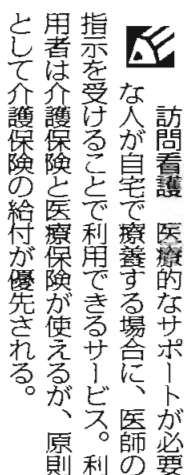 訪問看護　医療的なサポートが必要
な人が自宅で療養する場合に、医師の
指示を受けることで利用できるサービス。利
用者は介護保険と医療保険が使えるが、原則
として介護保険の給付が優先される。